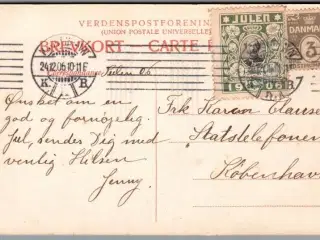 VERDENSPOSTFORENIN
(UNION POSTALE UNIVERSELLE)
BREVKORT. CARTE
JULEN
1906
DANMARK
3
24.12.06. 10-11 F
K. B.
Julen 06
Ønsket om en
god og fornøjelig
Jul, sendes Dig med
venlig Hilsen
Jenny
Frk Karen Clausen
Statstelefonen
København